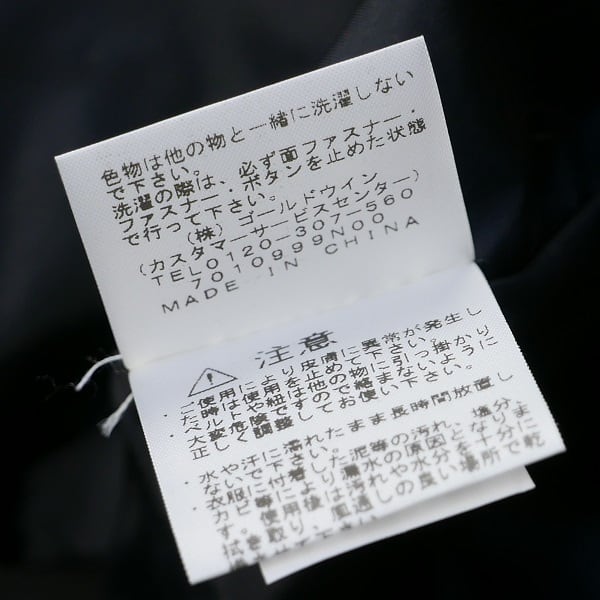 色物は他の物と一緒に洗濯しない
で下さい。
洗濯の際は、必ず面ファスナー・
ファスナー・ボタンを止めた状態
で行って下さい。
(株)ゴールドウイン
(カスタマーサービスセンター)
TEL0120-307-560
7010999N00
MADE IN CHINA
注意
・使用により皮膚に異常が発生し
た時は使用を止めて下さい。
・ベルトや紐は他の物に引っ掛かり
大変危険ですので絡まないように
正しく調整してお使い下さい。
・水や汗に濡れたまま長時間放置し
ないで下さい。
・衣服に付着した泥等の汚れ、塩分、
カビ等により漏水の原因となりま
す。使用後は汚れや水分を十分に
拭き取り、風通しの良い場所で乾